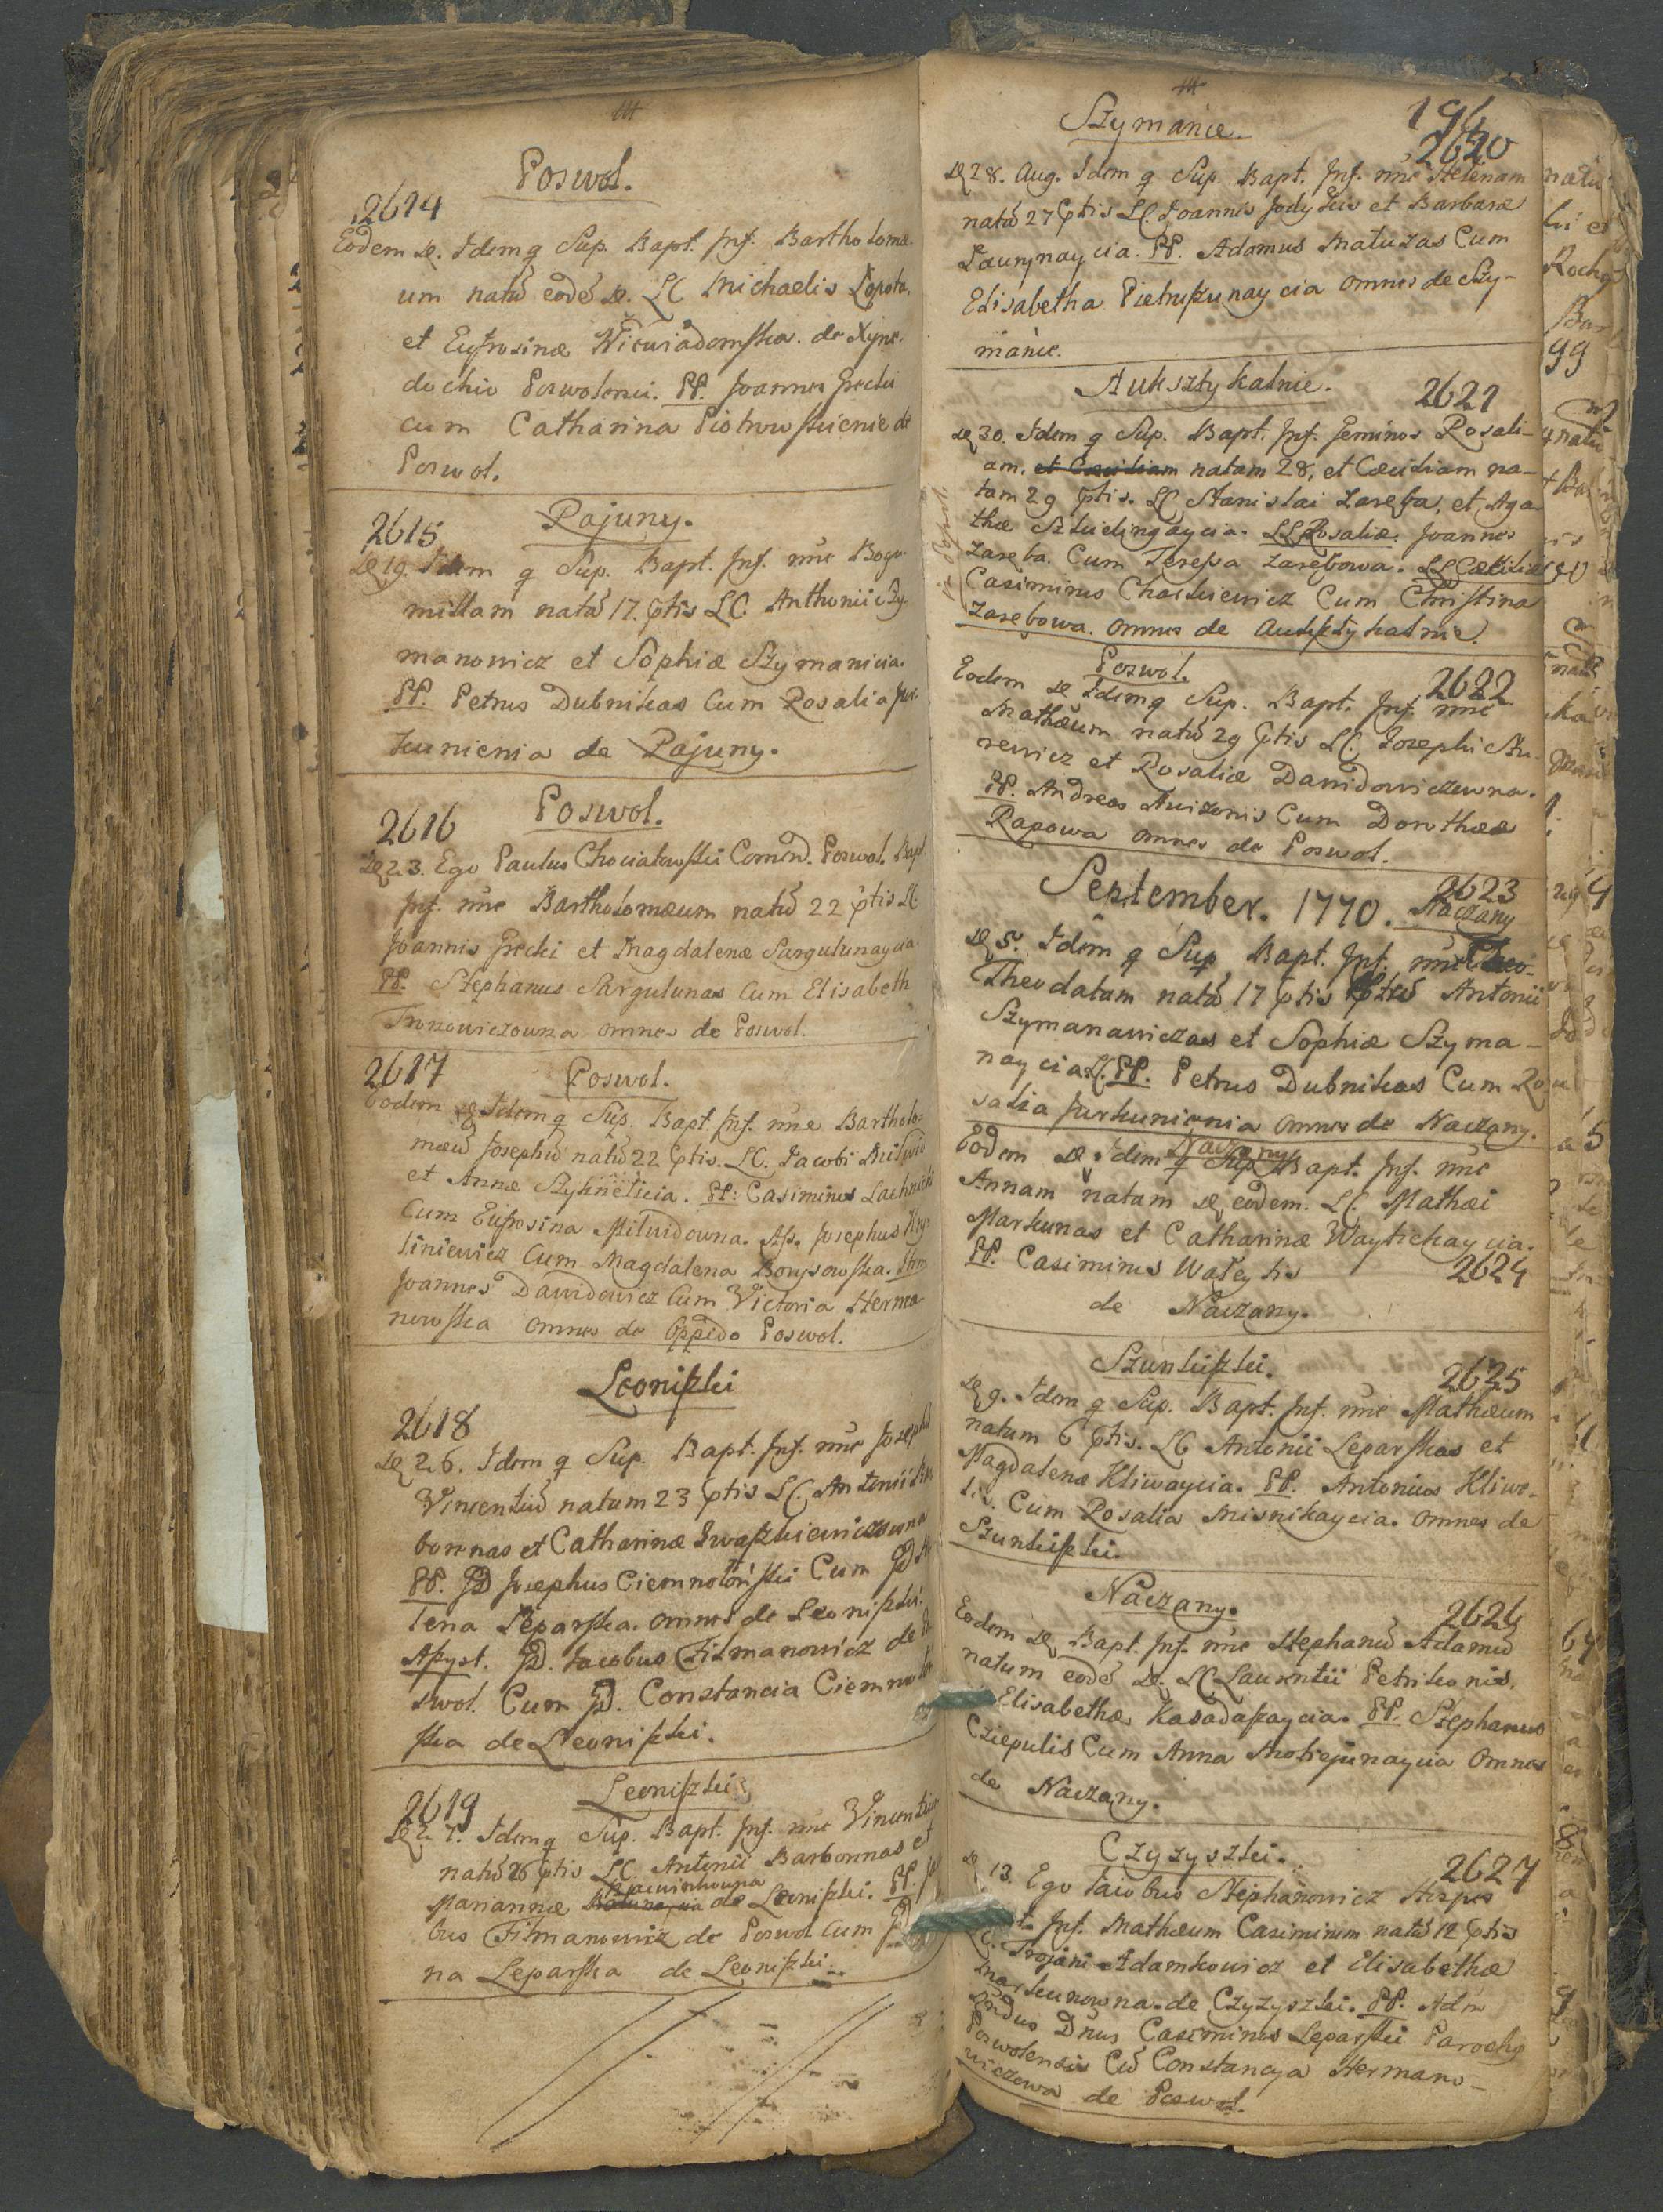 Poswol.
2614
Eodem D. Idem q Sup. Bapt. Inf. Bartholomæ-
um natū eodē D. LC Michaelis Łopota.
et Eufrosinæ Niewiadomska. de Xyno-
dochio Poswolensi. PP. Joannes Grecki
cum Catharina Piotrowskienie de
Poswol.
Pajuny.
2615
D 19. Idem q Sup. Bapt. Inf. nīe Bogu-
millam natā 17. pntis LC. Anthonii Szy-
manowicz et Sophiæ Szymanicia.
PP. Petrus Dubnikas Cum Rosalia Jur-
kunienia de Pajuny.
2616 Poswol.
D 23. Ego Paulus Chociatowski Comend. Poswol. Bapt
Inf. nīe Bartholomæum natū 22 pntis LC
Joannis Grecki et Magdalenæ Sargulunaycia
PP. Stephanus Sargulunas Cum Elisabeth
omnes de Poswol.
2617 Poswol.
Eodem D Idem q Sup. Bapt. Inf. nīe Bartholo-
mæū Josephū natū 22 pntis. LC. Jacobi
et Annæ PP. Casimirus
Cum Eufrosina Mitwidowna. As. Josephus
Cum Magdalena Borysowska.
Joannes Dawidowicz Cum Victoria Herma-
nowska omnes de Oppido Poswol.
Leoniszki
2618
D 26. Idem q Sup. Bapt. Inf. nīe Joseph
Vincentiū natum 23 pntis LC. Antonii Bar
bonnas et Catharinæ Iwaszkiewiczowna
PP. GD Josephus Ciemnołoński Cum GD
lena Leparska. omnes de Leoniszki.
Assyst. GD. Jacobus Filmanowicz de Po
swol. Cum GD. Constancia Ciemnoło
ska de Leoniszki.
2619 Leoniszki
D 27. Idem q Sup. Bapt. Inf. nīe Vincentiū
natū 26 pntis LC. Antonii Barbonnas et
Mariannæ de Leoniszki. PP.
bus Filmanowicz de Poswol Cum GD
na Leparska de Leoniszki.
194
Szymanie.
2620
D 28. Aug. Idem q Sup Bapt. Inf. nīe Helenam
natā 27 pntis LC. Joannis et Barbaræ
Laurynaycia. PP. Adamus Matuzas Cum
Elisabetha Pietruszunaycia omnes de Szy-
manie.
Auksztykalnie. 2621
D 30. Idem q Sup. Bapt. Inf. Geminos Rosali-
am, et Cæciliam natam 28, et Cæciliam na-
tam 29 pntis. LC Stanislai Zaręba, et Aga-
thæ LL Rosaliæ. Joannes
Zaręba. Cum Teressa Zarębowa. LL Cæciliæ
Casimirus Chackiewicz Cum Christina
Zarębowa. omnes de Auksztykalnie.
Poswol. 2622
Eodem D Idem q Sup. Bapt. Inf. nīe
Mathæum natū 29 pntis LC. Josephi
rewicz et Rosaliæ Dawidowiczowna.
PP. Andreas Awizonis Cum Dorothea
Rapowa omnes de Poswol.
September. 1770. 2623
Naczany
D 5. Idem q Sup Bapt. Inf. nīe
Theodatam natā 17 pntis Antonii
Szymanawiczas et Sophiæ Szyma-
naycia LC. PP. Petrus Dubnikas Cum Ro
salia Jurkunienia omnes de Naczany.
Naczany
Eodem D Idem q Sup Bapt. Inf. nīe
Annam natam D eodem. LC. Mathæi
Markunas et Catharinæ Waytiekaycia.
PP. Casimirus Wałeytis 2624
de Naczany.
Szunkiszki. 2625
D 9. Idem q Sup. Bapt. Inf. nīe Mathæum
natum 6 pntis. LC Antonii Leparskas et
Magdalenæ Kliwaycia. PP. Antonius Kliwo-
lis. Cum Rosalia Misnikaycia. omnes de
Szunkiszki.
Naczany. 2626
Eodem D Bapt. Inf. nīe Stephanū Adamū
natum eodē D. LC Laurentii Petrikonis.
Elisabethæ Kasadaszaycia. PP. Stephanus
Cziepulis Cum Anna Motiejunaycia omnes
de Naczany.
Czyzyszki. 2627
D 13. Ego Jacobus Stephanowicz Hospes
Inf. Mathæum Casimirum natū 12 pntis
LC. Trojani Adamkowicz et Elisabethæ
Markunowna de Czyzyszki. PP. Adm
Rndus Dnus Casimirus Leparski Parochus
Poswolensis Cū Constancya Hermano-
wiczowa de Poswol.